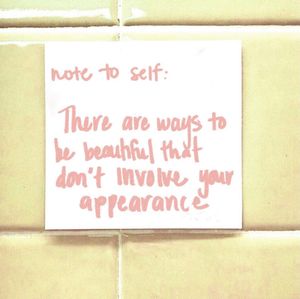 note to self:
There are ways to
be beautiful that
don't involve your
appearance